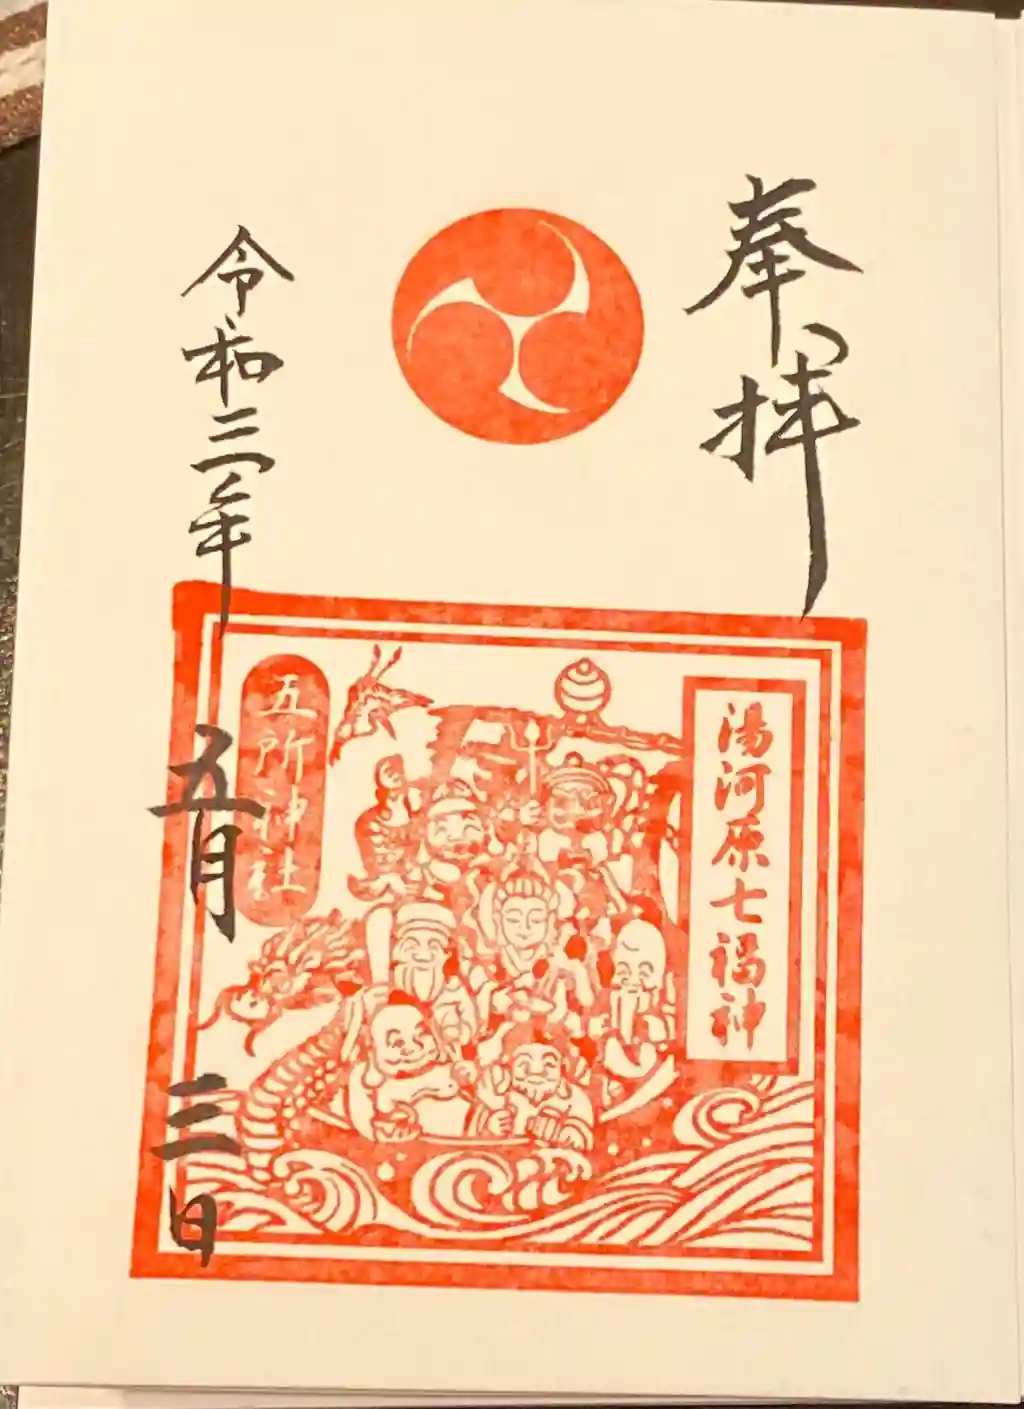 奉拝
湯河原七福神
五所神社
令和三年
五月
三日